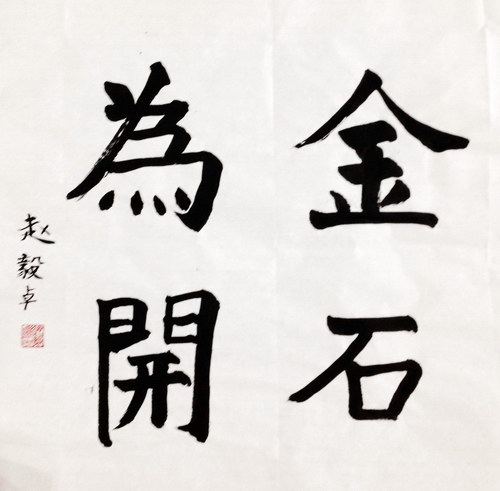 金石
為開
赵毅卓